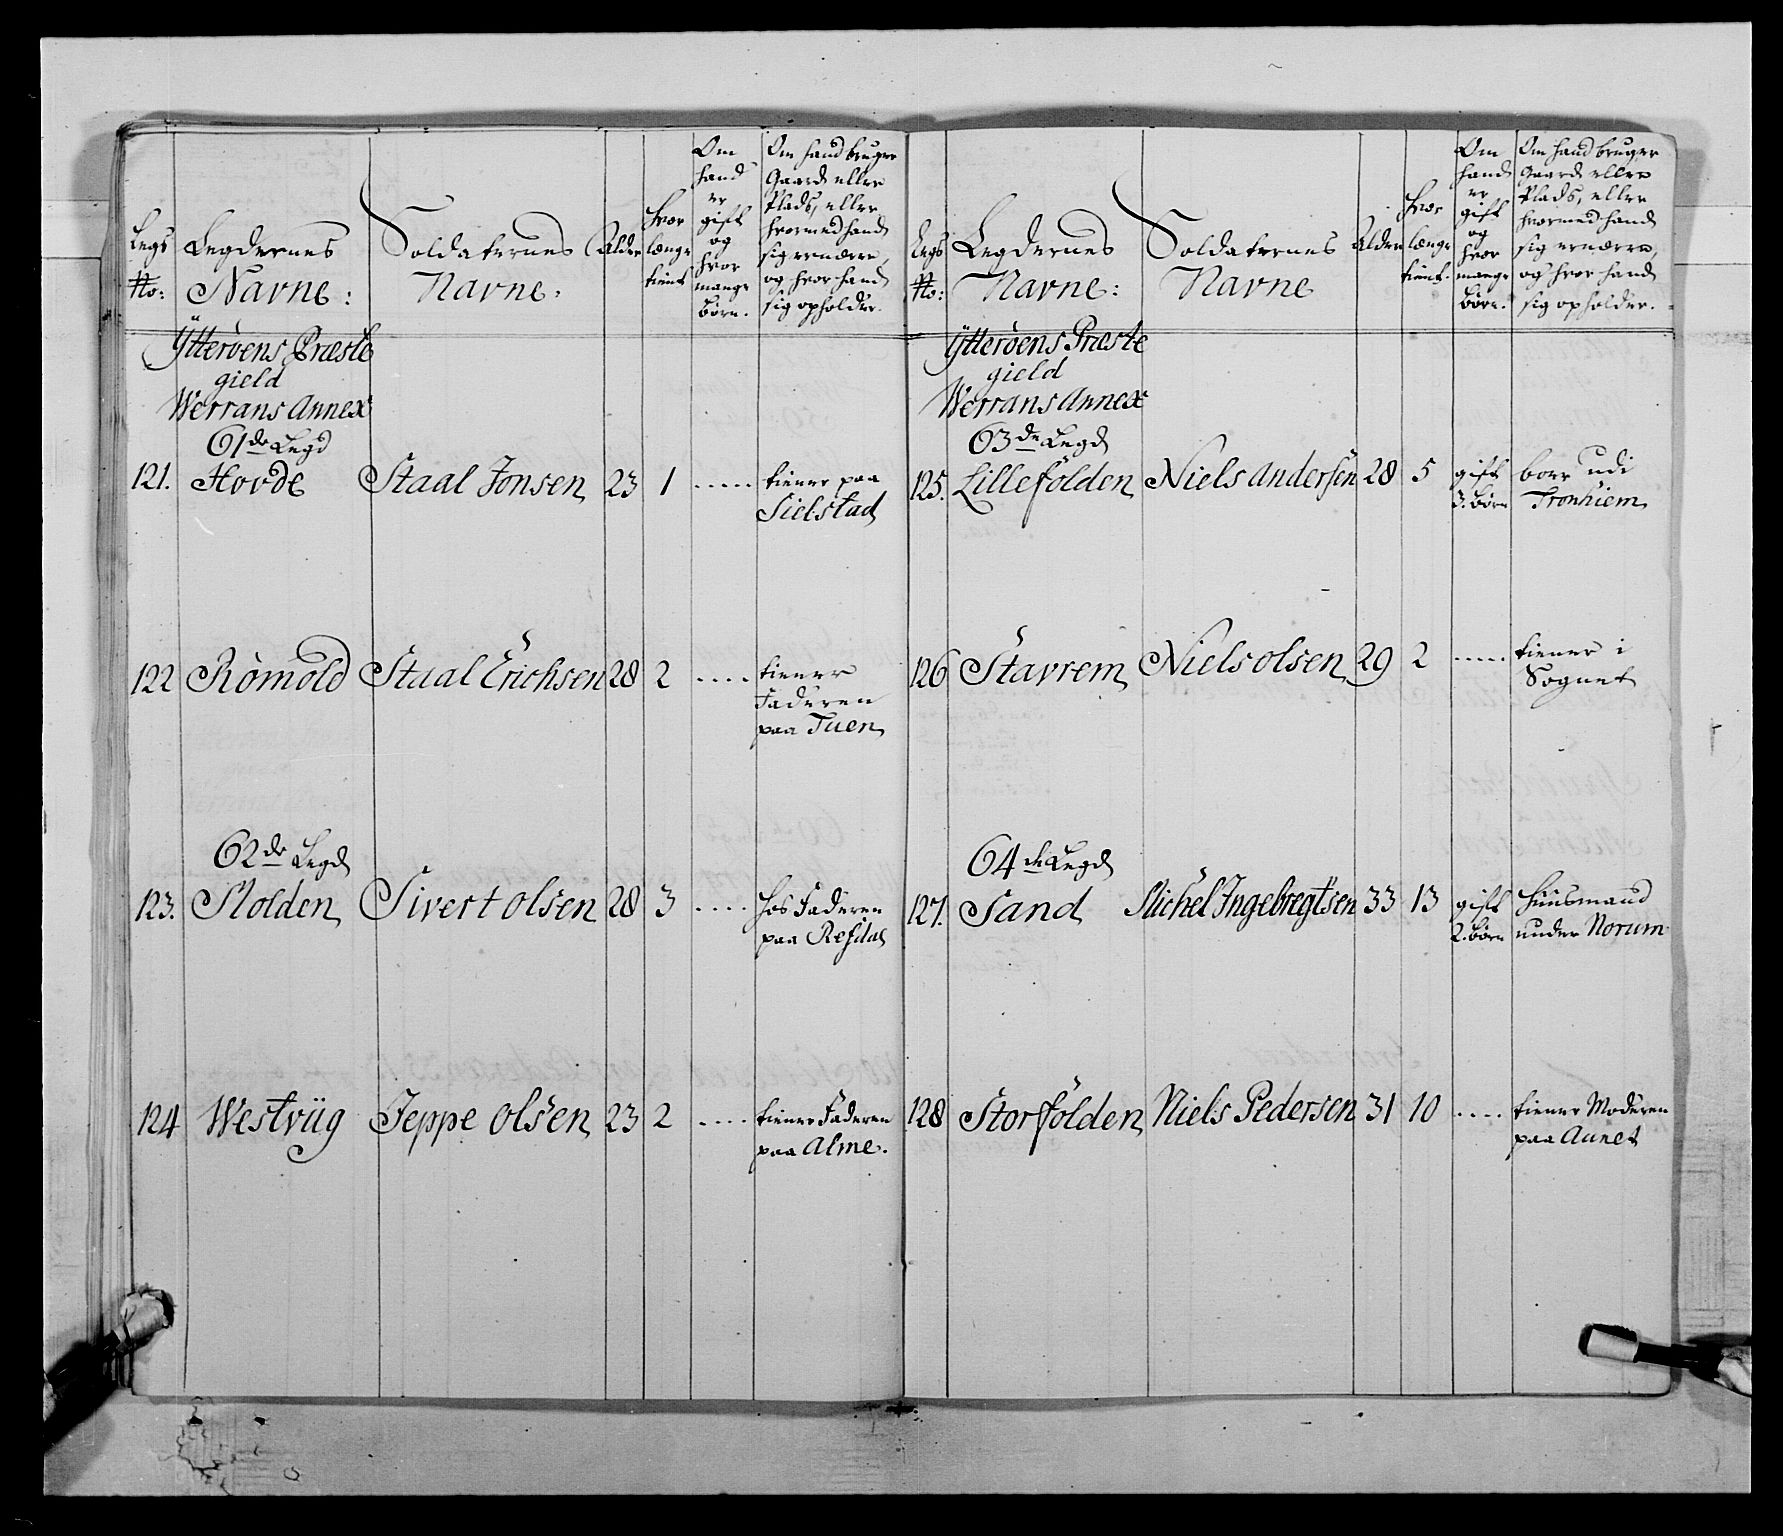 Legs
No:
Legdernes
Navne:
Soldaternes
Navne.
Alder
hvor
længe
tient
Om
hand
er
gift
og
hvor
mange
börn.
Om hand bruger
Gaard eller
Plads, eller
hvormed hand
sig ernærer,
og hvor hand
sig opholder.
Ytteröens Præste
gield
Werrans Annex
61de Legd
121. Hovde Staal Jonsen 23 1 ..... tiener paa
Sielstad
122 Römold Staal Erichsen 28 2 .... tiener
Faderen
paa Tuen
62de Legd
123. Molden Sivert olsen 28 3 .... hos Faderen
paa Refdal
124 Westviig Jeppe olsen 23 2 .... tiener Faderen
paa Alme.
Legs
No:
Legdernes
Navne:
Soldaternes
Navne
Alder
hvor
længe
tient.
Om
hand
er
gift
og
hvor
mange
börn.
Om hand bruger
Gaard eller
Plads, eller
hvormed hand
sig ernærer,
og hvor hand
sig opholder.
Ytteröens Præste
gield
Werrans Annex
63de Legd
125. Lillefölden Niels Andersen 28 5 gift boer udi
3. börn Tronhiem
126 Stavrem Niels olsen 29 2 ..... tiener i
Sognet
64de Legd
127. Sand Michel Ingebregtsen 33 13 gift Huusmand
2. börn under Norum
128 Storfölden Niels Pedersen 31 10 .... tiener Moderen
paa Aunet